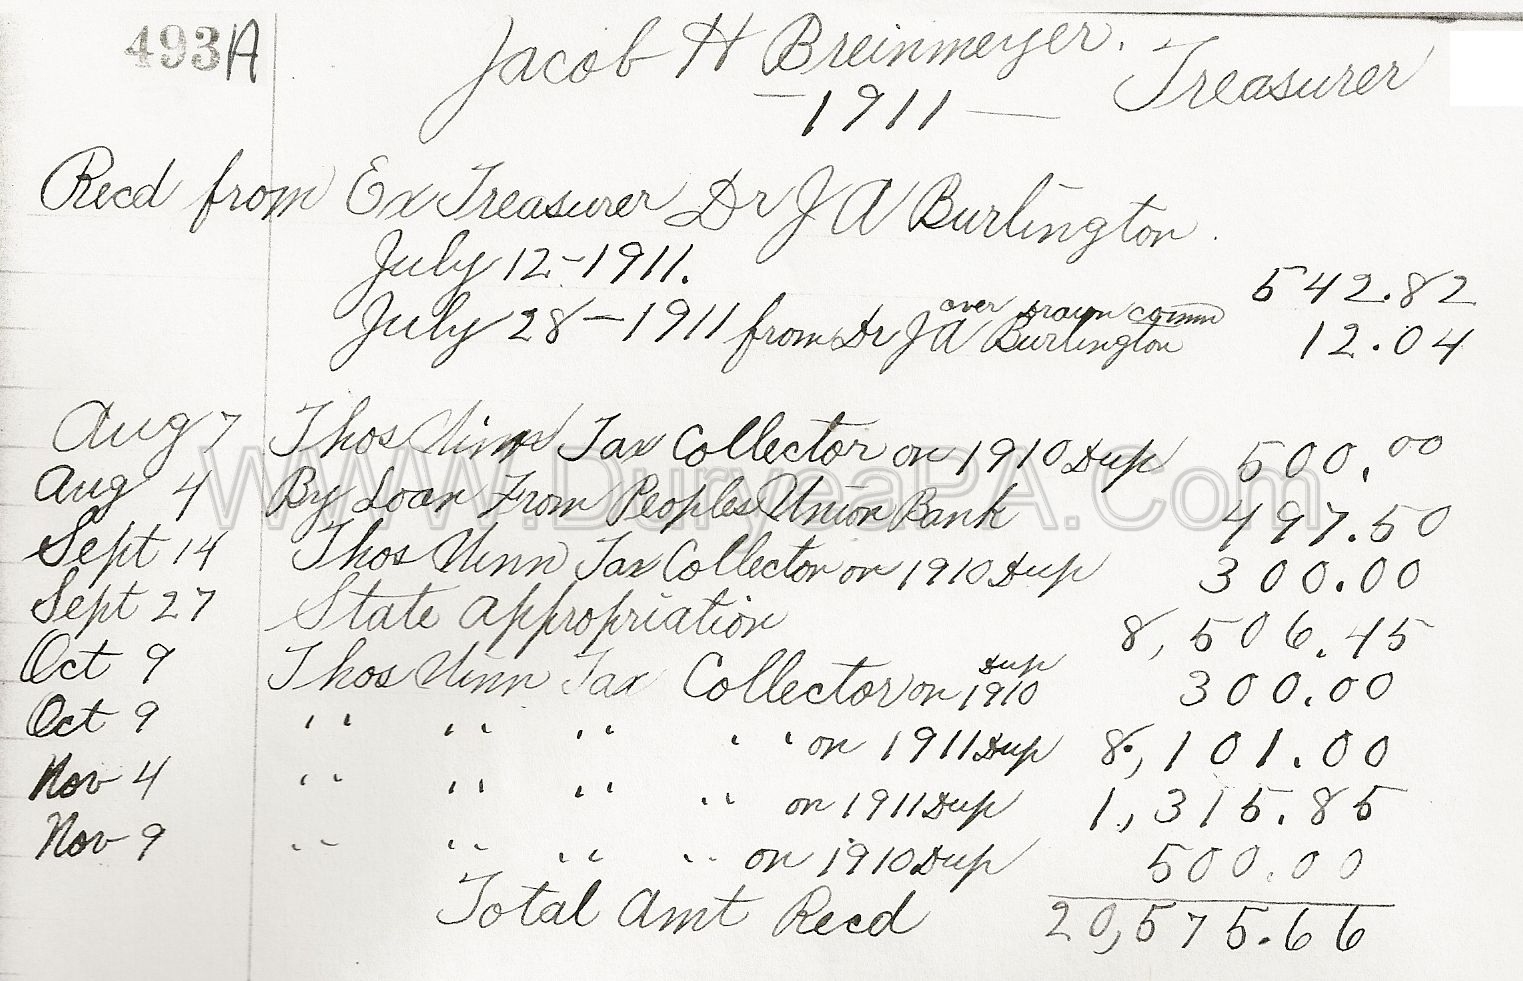 493A
Jacob H Breinmeyer. Treasurer
— 1911 —
Recd from Ex Treasurer Dr J A Burlington.
July 12-1911. 542.82
over drawn comm
July 28-1911 from Dr J A Burlington 12.04
Aug 7 Thos Tax Collector on 1910 Dup 500.00
www.DuryeaPA.Com
Aug 4 By Loan From Peoples Union Bank 497.50
Sept 14 Thos Tax Collector on 1910 Dup 300.00
Sept 27 State Appropriation 8,506.45
Oct 9 Thos Tax Collector on 1910 Dup 300.00
Oct 9 " " " " on 1911 Dup 8,101.00
Nov 4 " " " " on 1911 Dup 1,315.85
Nov 9 " " " " on 1910 Dup 500.00
Total Amt Recd 20,575.66